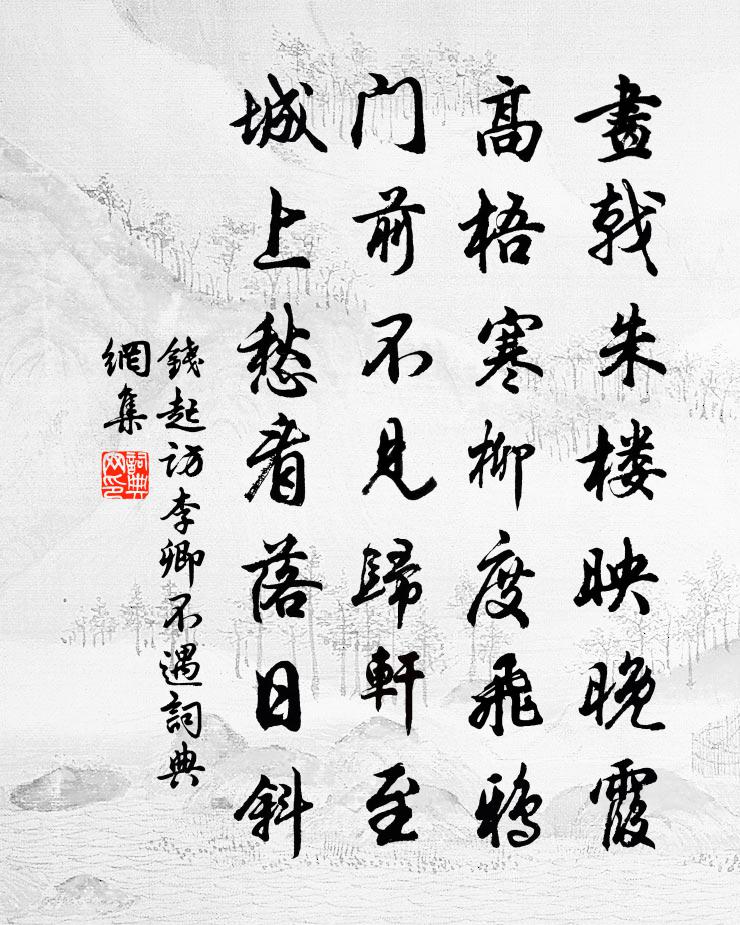 畫戟朱楼映晚霞
高梧寒柳度飛鴉
门前不見歸軒至
城上愁看落日斜
錢起访李卿不遇詞典
網集
詞典
网印